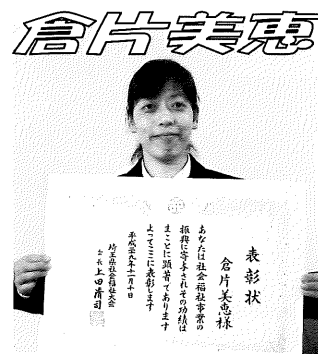 倉片美恵
表彰状
倉片美恵様
あなたは社会福祉事業の
振興に寄与されその功績は
まことに顕著であります
よってここに表彰します
平成二十九年十一月十日
埼玉県社会福祉大会
会長 上田清司